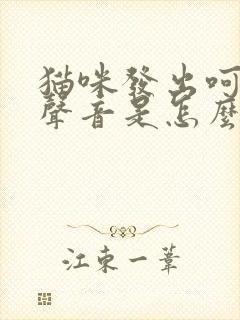 猫咪發出呵
聲音是怎麼
江東一葦